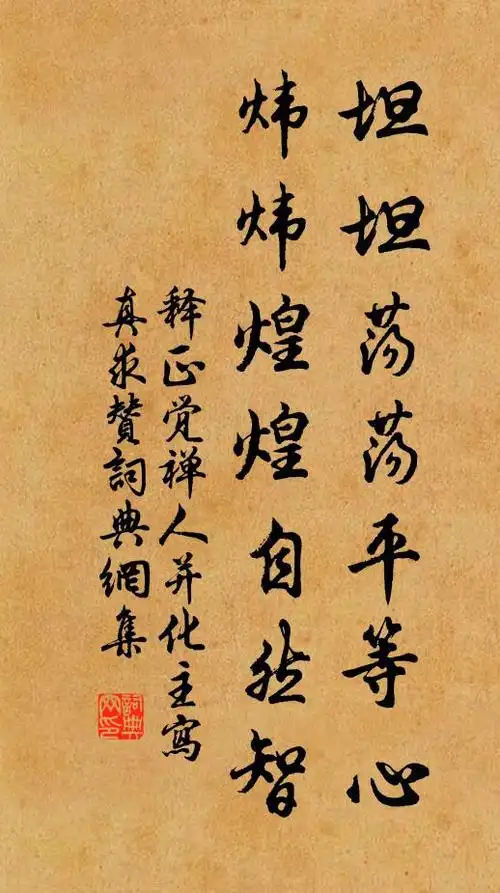 坦坦荡荡平等心
炜炜煌煌自然智
释正觉禅人并化主寫
真求贊詞典網集
詞典网印